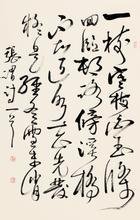 一樹寒梅白玉條
迥臨村路傍溪橋
不知近水花先發
疑是經冬雪未消
張謂詩